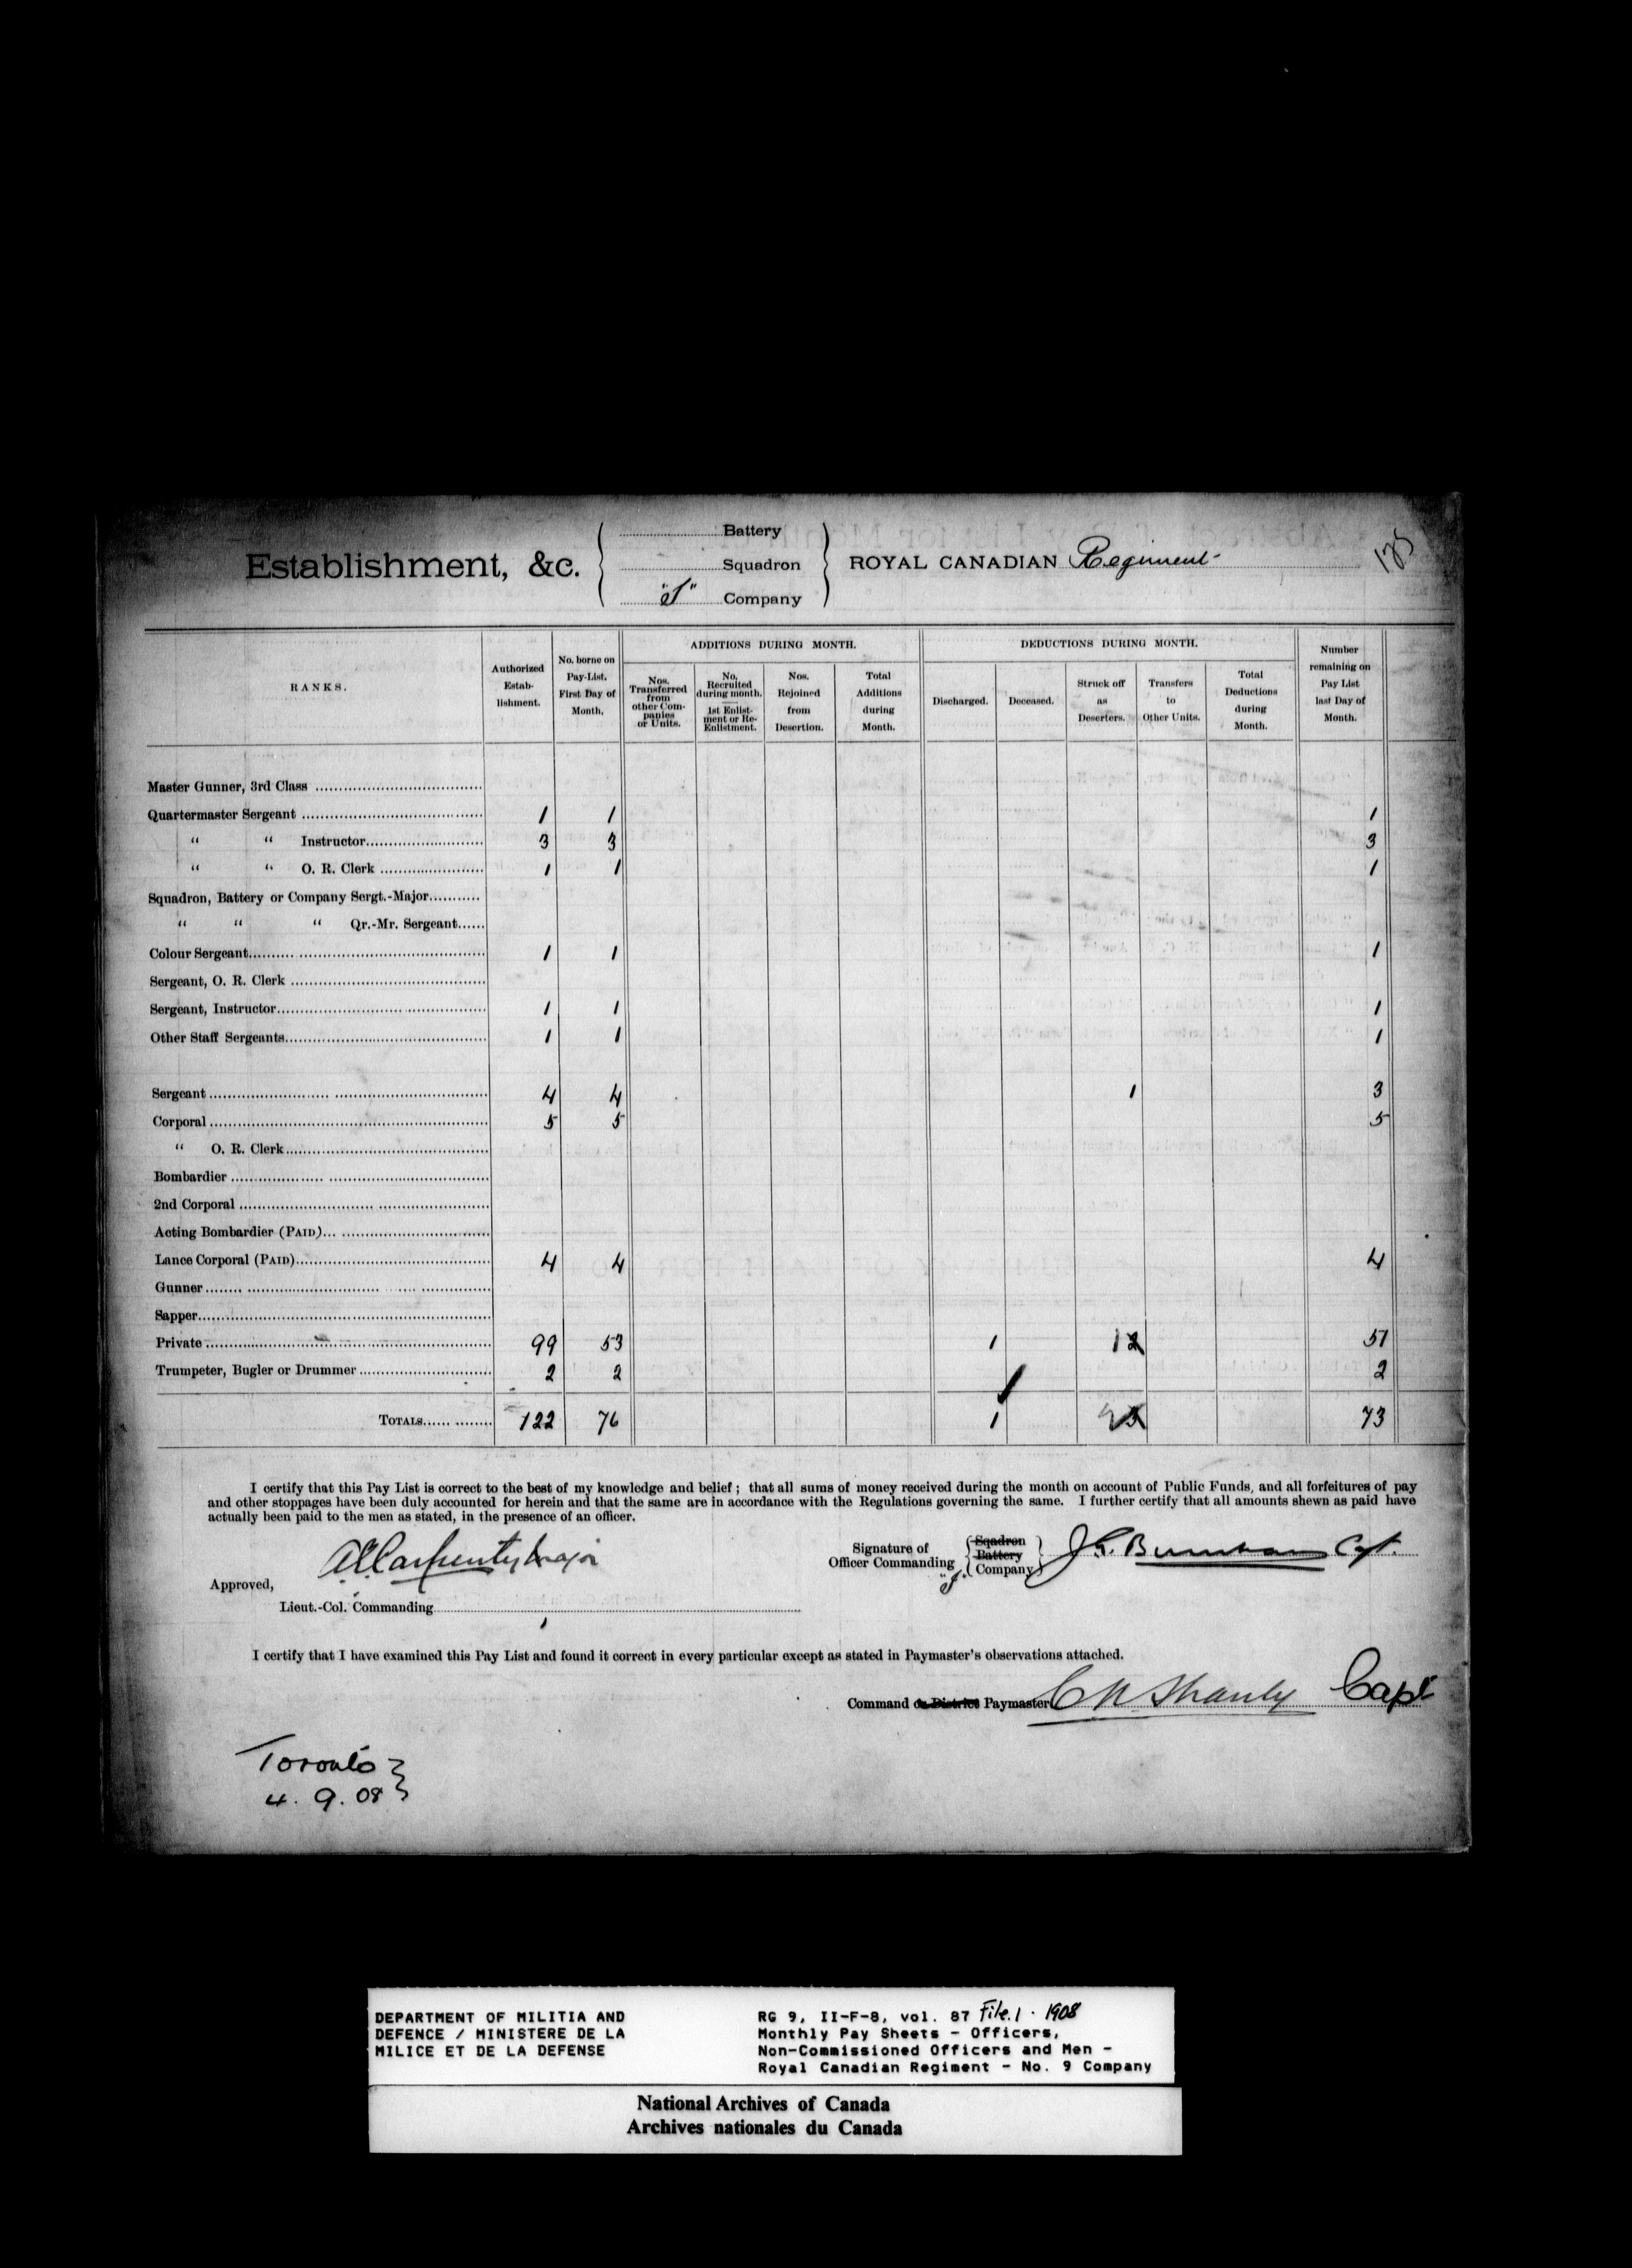 Establishment, &c.
Battery
Squadron
Company
ROYAL CANADIAN Regiment
RANKS.
Authorized Estab- lishment.
No. borne on Pay-List. First Day of Month.
ADDITIONS DURING MONTH.
Nos. Transferred from other Com- panies or Units.
No. Recruited during month. 1st Enlist- ment or Re- Enlistment.
Nos. Rejoined from Desertion.
Total Additions during Month.
DEDUCTIONS DURING MONTH.
Discharged.
Deceased.
Struck off as Deserters.
Transfers to Other Units.
Total Deductions during Month.
Number remaining on Pay List last Day of Month.
Master Gunner, 3rd Class
Quartermaster Sergeant 1 1 1
“ “ Instructor 3 3 3
“ “ O. R. Clerk 1 1 1
Squadron, Battery or Company Sergt.-Major
“ “ “ Qr.-Mr. Sergeant
Colour Sergeant 1 1 1
Sergeant, O. R. Clerk
Sergeant, Instructor 1 1 1
Other Staff Sergeants 1 1 1
Sergeant 4 4 1 3
Corporal 5 5 5
“ O. R. Clerk
Bombardier
2nd Corporal
Acting Bombardier (PAID)
Lance Corporal (PAID) 4 4 4
Gunner
Sapper
Private 99 53 1 1 51
Trumpeter, Bugler or Drummer 2 2 2
TOTALS 122 76 1 73
I certify that this Pay List is correct to the best of my knowledge and belief ; that all sums of money received during the month on account of Public Funds, and all forfeitures of pay
and other stoppages have been duly accounted for herein and that the same are in accordance with the Regulations governing the same. I further certify that all amounts shewn as paid have
actually been paid to the men as stated, in the presence of an officer.
Approved,
A.E. Carpenter Major
Lieut.-Col. Commanding
Signature of
Officer Commanding
Sqadron
Battery
Company
Burnham Capt.
I certify that I have examined this Pay List and found it correct in every particular except as stated in Paymaster's observations attached.
Command or District Paymaster C N Shanly Capt
Toronto
4. 9. 08
DEPARTMENT OF MILITIA AND
DEFENCE / MINISTERE DE LA
MILICE ET DE LA DEFENSE
RG 9, II-F-8, vol. 87 File.1 · 1908
Monthly Pay Sheets - Officers,
Non-Commissioned Officers and Men -
Royal Canadian Regiment - No. 9 Company
National Archives of Canada
Archives nationales du Canada